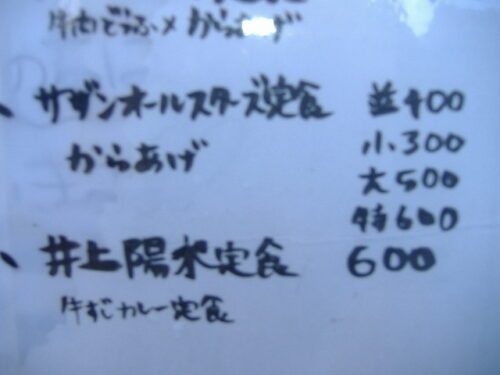 牛肉どうふ×からあげ
サザンオールスターズ定食 並400
からあげ 小300
大500
特600
井上陽水定食 600
牛すじカレー定食